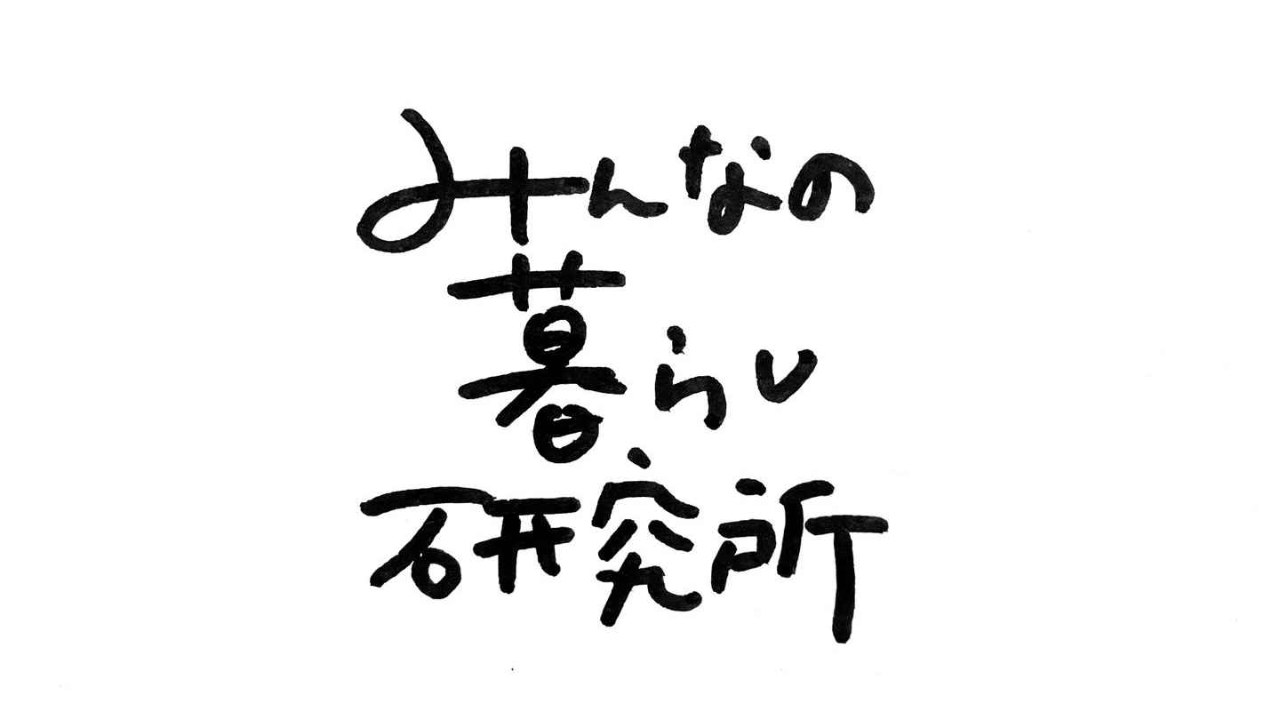 みんなの
暮らし
研究所